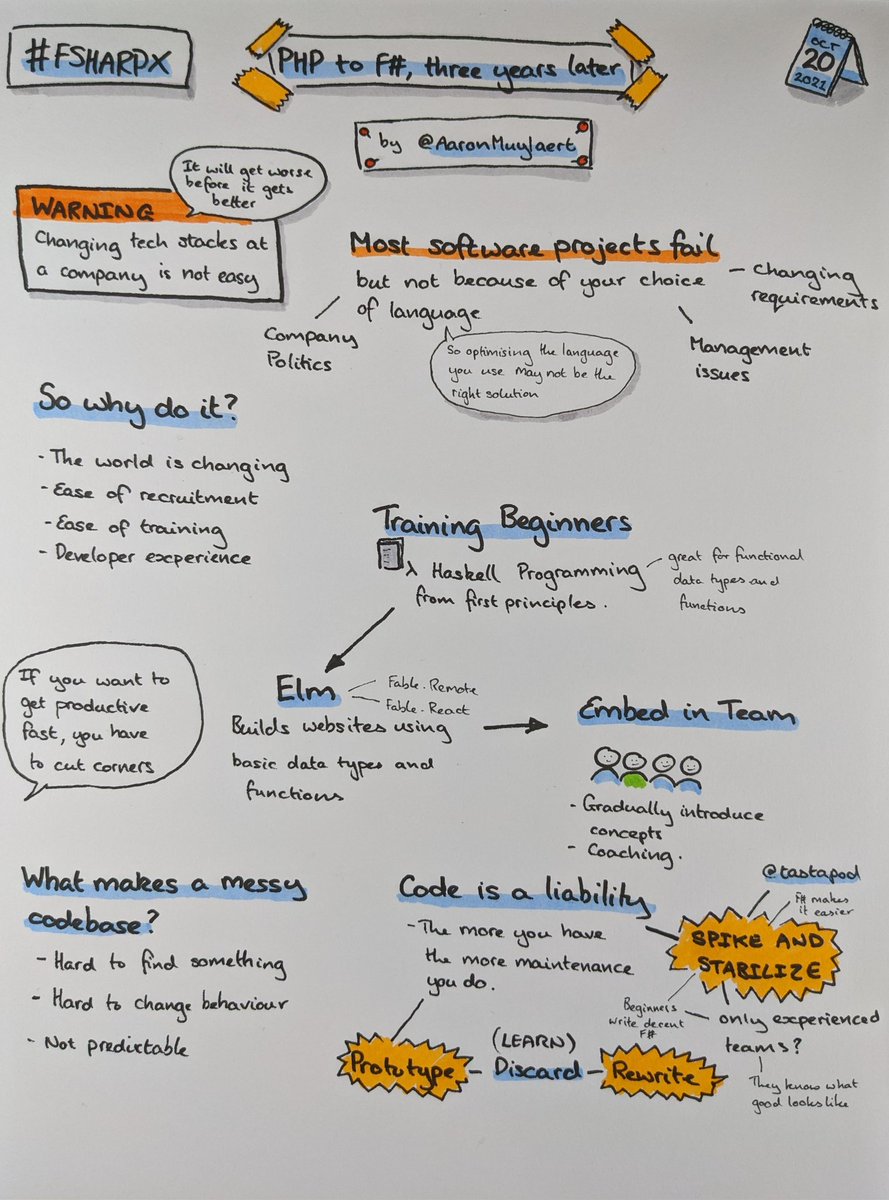 #FSHARPX
PHP to F#, three years later
OCT
20
2021
by @AaronMuylaert
It will get worse
before it gets
better
WARNING
Changing tech stacks at
a company is not easy
Most software projects fail
but not because of your choice
of language
Changing
requirements
Company
Politics
Management
issues
So optimising the language
you use may not be the
right solution
So why do it?
- The world is changing
- Ease of recruitment
- Ease of training
- Developer experience
Training Beginners
λ Haskell Programming
from first principles.
great for functional
data types and
functions
If you want to
get productive
fast, you have
to cut corners
Elm
Fable.Remote
Fable.React
Builds websites using
basic data types and
functions
Embed in Team
- Gradually introduce
concepts
- Coaching.
What makes a messy
codebase?
- Hard to find something
- Hard to change behaviour
- Not predictable
Code is a liability
- The more you have
the more maintenance
you do.
@tastapod
F# makes
it easier
SPIKE AND
STABILIZE
Beginners
write decent
F#
only experienced
teams?
They know what
good looks like
Prototype - (LEARN)
Discard - Rewrite